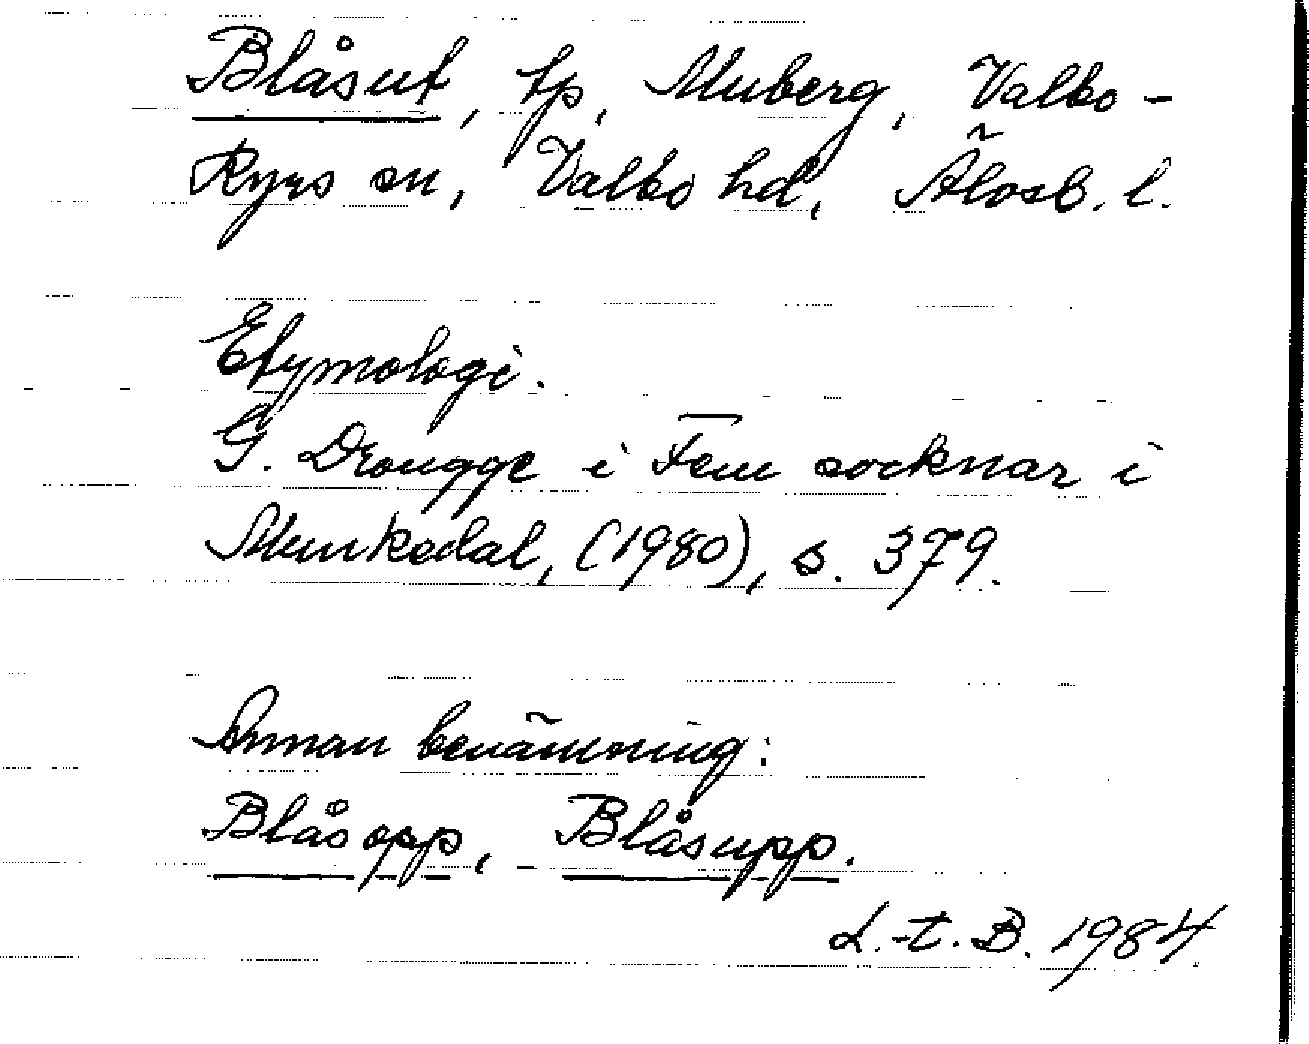 Blåsut, tp, Muberg, Valbo-
Ryrs sn, Valbo hd, Älvsb. l.
Etymologi.
G. Drougge i Fem socknar i
Munkedal, (1980), s. 379.
Annan benämning:
Blåsopp, Blåsupp.
L.t.B. 1984.